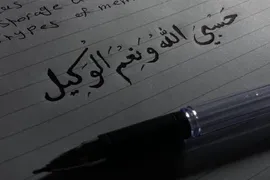 storage a
types of mem
حَسْبِيَ اللهُ وَنِعْمَ الْوَكِيلُ